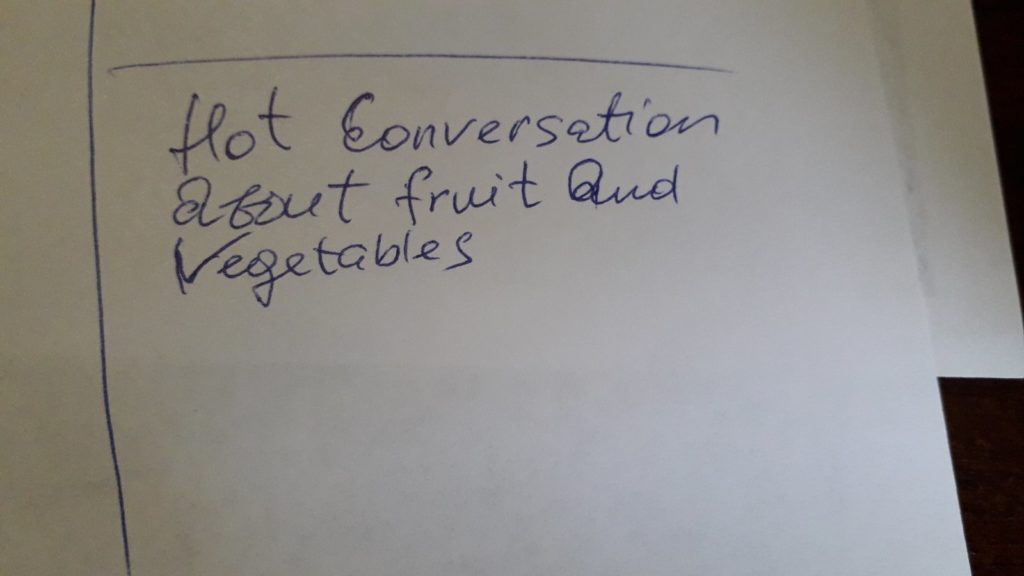 Hot Conversation
about fruit and
Vegetables